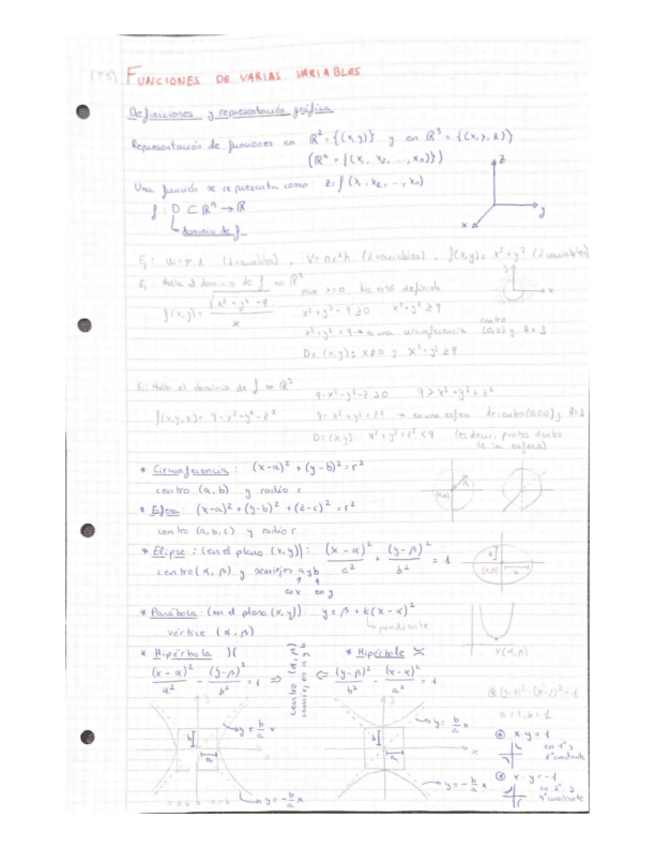 (T5) FUNCIONES DE VARIAS VARIABLES
Definiciones y representación gráfica
Representación de funciones en ℝ² = {(x,y)} y en ℝ³ = {(x,y,z)}
(ℝⁿ = {(x₁, x₂, ..., xₙ)})
Una función se representa como: z = f(x₁, x₂, ..., xₙ)
f: D ⊂ ℝⁿ → ℝ
dominio de f
z
y
x
Ej: (2 variables), V = πr²h (2 variables), f(x,y) = x² + y² (2 variables)
Ej: Halla el dominio de f en ℝ²
para x=0 No está definida
f(x,y) = √(x² + y² - 9) / x
x² + y² - 9 ≥ 0 x² + y² ≥ 9
x² + y² = 9 → es una circunferencia centro (0,0) y R = 3
D = (x,y): x≠0 y x² + y² ≥ 9
Ej: Halla el dominio de f en ℝ³
9 > x² + y² + z²
f(x,y,z) = 9 - x² - y² - z²
9 = x² + y² + z² → es una esfera de centro (0,0,0) y R=3
D = (x,y): x² + y² + z² < 9 (es decir, puntos dentro
de la esfera)
* Circunferencia: (x-a)² + (y-b)² = r²
centro (a, b) y radio r
* Esfera: (x-a)² + (y-b)² + (z-c)² = r²
centro (a, b, c) y radio r
* Elipse: (en el plano (x,y)): (x-α)²/a² + (y-β)²/b² = 1
centro (α, β) y semiejes a y b
en x en y
* Parábola: (en el plano (x,y)): y = β + k(x-α)²
pendiente
vértice (α, β)
V(α, β)
* Hipérbola )( 
(x-α)²/a² - (y-β)²/b² = 1 ⇒
centro (α, β)
* Hipérbole
⇐ (y-β)²/b² - (x-α)²/a² = 1
(y-1)² - (x-2)² = 1
a = 1, b = 1
y = b/a x
y = -b/a x
y = b/a x
y = -b/a x
x·y = 1
en 1º y
3º cuadrante
x·y = -1
en 2º y
4º cuadrante